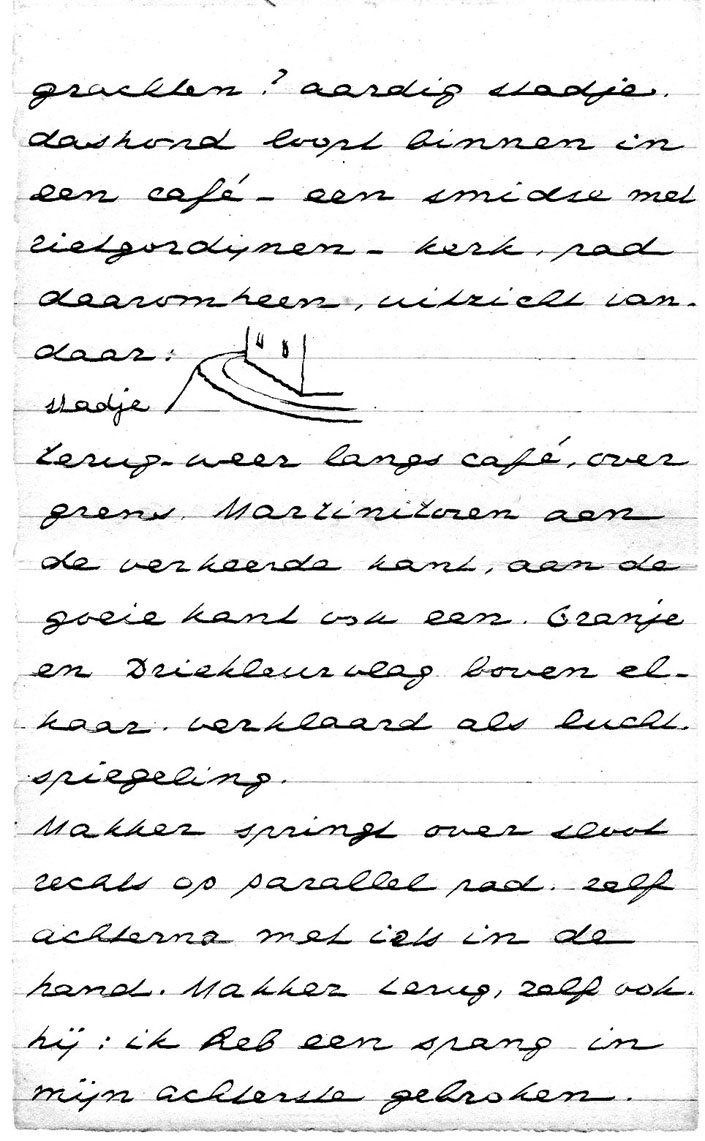 grachten? aardig stadje.
dashond loopt binnen in
een café - een smidse met
rietgordijnen - kerk, pad
daaromheen, uitzicht van-
daar:
stadje
terug - weer langs café, over
grens. Martinitoren aan
de verkeerde kant, aan de
goeie kant ook een. Oranje
en Driekleurvlag boven el-
kaar. verklaard als lucht-
spiegeling.
Makker springt over sloot
rechts op parallel pad. zelf
achterna met iets in de
hand. Makker terug, zelf ook.
hij: ik heb een spang in
mijn achterste gebroken.